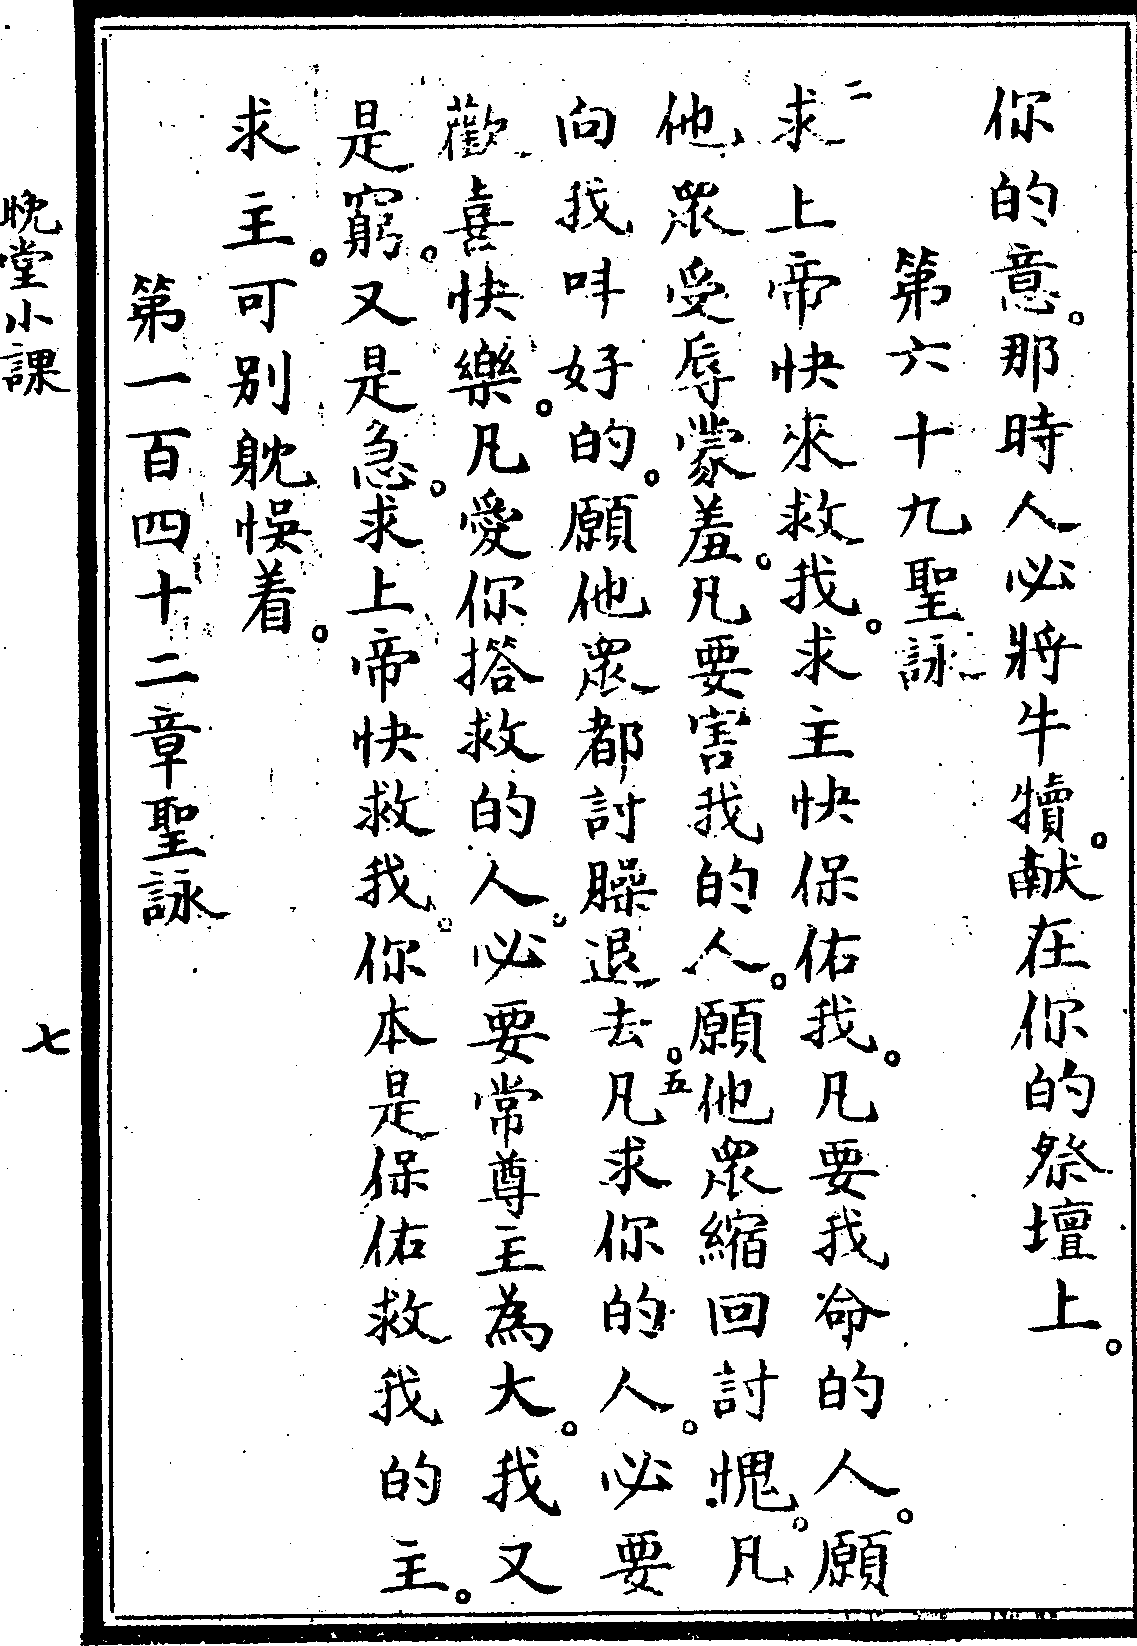 你的意。那時人必將牛犢。獻在你的祭壇上。
第六十九聖詠
二求上帝快來救我。求主快保佑我。凡要我命的人。願
他眾受辱蒙羞。凡要害我的人。願他眾縮回討愧。凡
向我呌好的。願他眾都討臊退去。五凡求你的人。必要
歡喜快樂。凡愛你搭救的人。必要常尊主為大。我又
是窮。又是急。求上帝快救我。你本是保佑救我的主。
求主。可别躭悞着。
第一百四十二章聖詠
晚堂小課
七